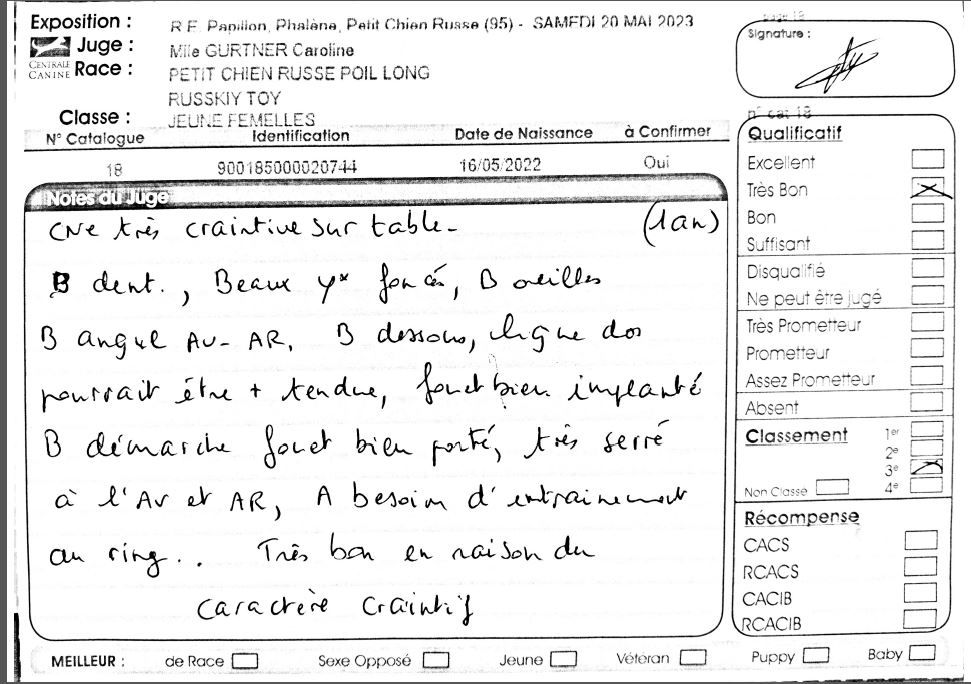 page 18
Exposition : R.E. Papillon, Phalène, Petit Chien Russe (95) - SAMEDI 20 MAI 2023
CENTRALE CANINE
Juge : Mlle GURTNER Caroline
Race : PETIT CHIEN RUSSE POIL LONG
RUSSKIY TOY
Classe : JEUNE FEMELLES
Signature :
n° cat 18
N° Catalogue Identification Date de Naissance à Confirmer
18 900185000020744 16/05/2022 Oui
Notes du Juge
CNe très craintive sur table - (1an)
B dent., Beaux yx foncés, B oreilles
B angul AV- AR, B dessous, ligne dos
pourrait être + tendue, fouet bien implanté
B démarche fouet bien porté, très serré
à l'AV et AR, A besoin d'entrainement
au ring.. Très bon en raison du
caractère craintif
Qualificatif
Excellent
Très Bon
Bon
Suffisant
Disqualifié
Ne peut être jugé
Très Prometteur
Prometteur
Assez Prometteur
Absent
Classement 1er
2e
3e
Non Classé 4e
Récompense
CACS
RCACS
CACIB
RCACIB
MEILLEUR : de Race Sexe Opposé Jeune Vétéran Puppy Baby